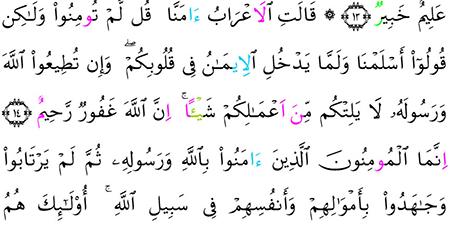 عَلِيمٌ خَبِيرٌ ﴿١٣﴾ ۞ قَالَتِ الَاعْرَابُ ءَامَنَّا قُل لَّمْ تُومِنُواْ وَلَٰكِن
قُولُوٓاْ أَسْلَمْنَا وَلَمَّا يَدْخُلِ الِايمَٰنُ فِے قُلُوبِكُمْ وَإِن تُطِيعُواْ اللَّهَ
وَرَسُولَهُۥ لَا يَلِتْكُم مِّنَ اَعْمَٰلِكُمْ شَيْـًٔا اِنَّ اللَّهَ غَفُورٌ رَّحِيمٌ ﴿١٤﴾
اِنَّمَا الْمُومِنُونَ الَّذِينَ ءَامَنُواْ بِاللَّهِ وَرَسُولِهِۦ ثُمَّ لَمْ يَرْتَابُواْ
وَجَٰهَدُواْ بِأَمْوَٰلِهِمْ وَأَنفُسِهِمْ فِے سَبِيلِ اللَّهِ أُوْلَٰٓئِكَ هُمُ